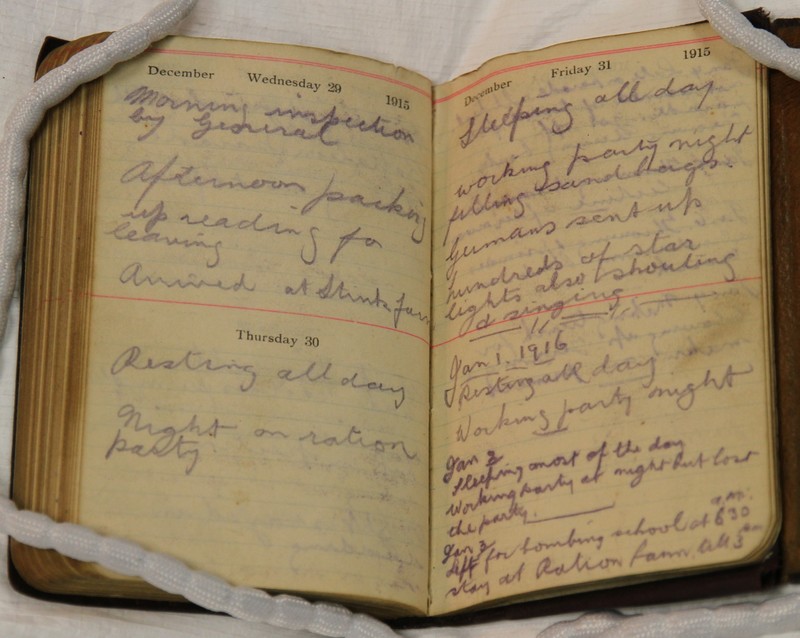 December Wednesday 29 1915
Morning inspection
by General
Afternoon packing
up reading fo
leaving
Arrived at Stink farm
Thursday 30
Resting all day
Night on ration
party
December Friday 31 1915
Sleeping all day
working party night
filling sand bags.
Germans sent up
hundreds of star
lights also shouting
& singing
Jan 1. 1916
Resting all day
Working party night
Jan 2
Sleeping most of the day
Working party at night but lost
the party.
Jan 3
Left for bombing school at 6 30 a.m.
stay at Ration Farm till 5